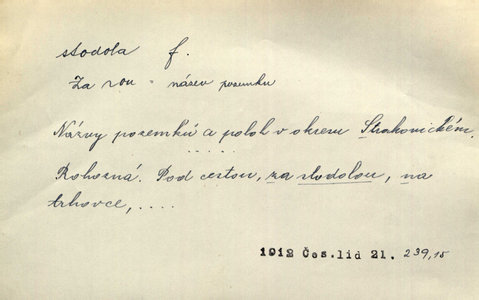 stodola f.
Za ~ou - název pozemku
Názvy pozemků a poloh v okresu Strakonickém.
.....
Rohozná. Pod cestou, za stodolou, na
trhovce, ....
1912 Čes. lid 21. 239,15